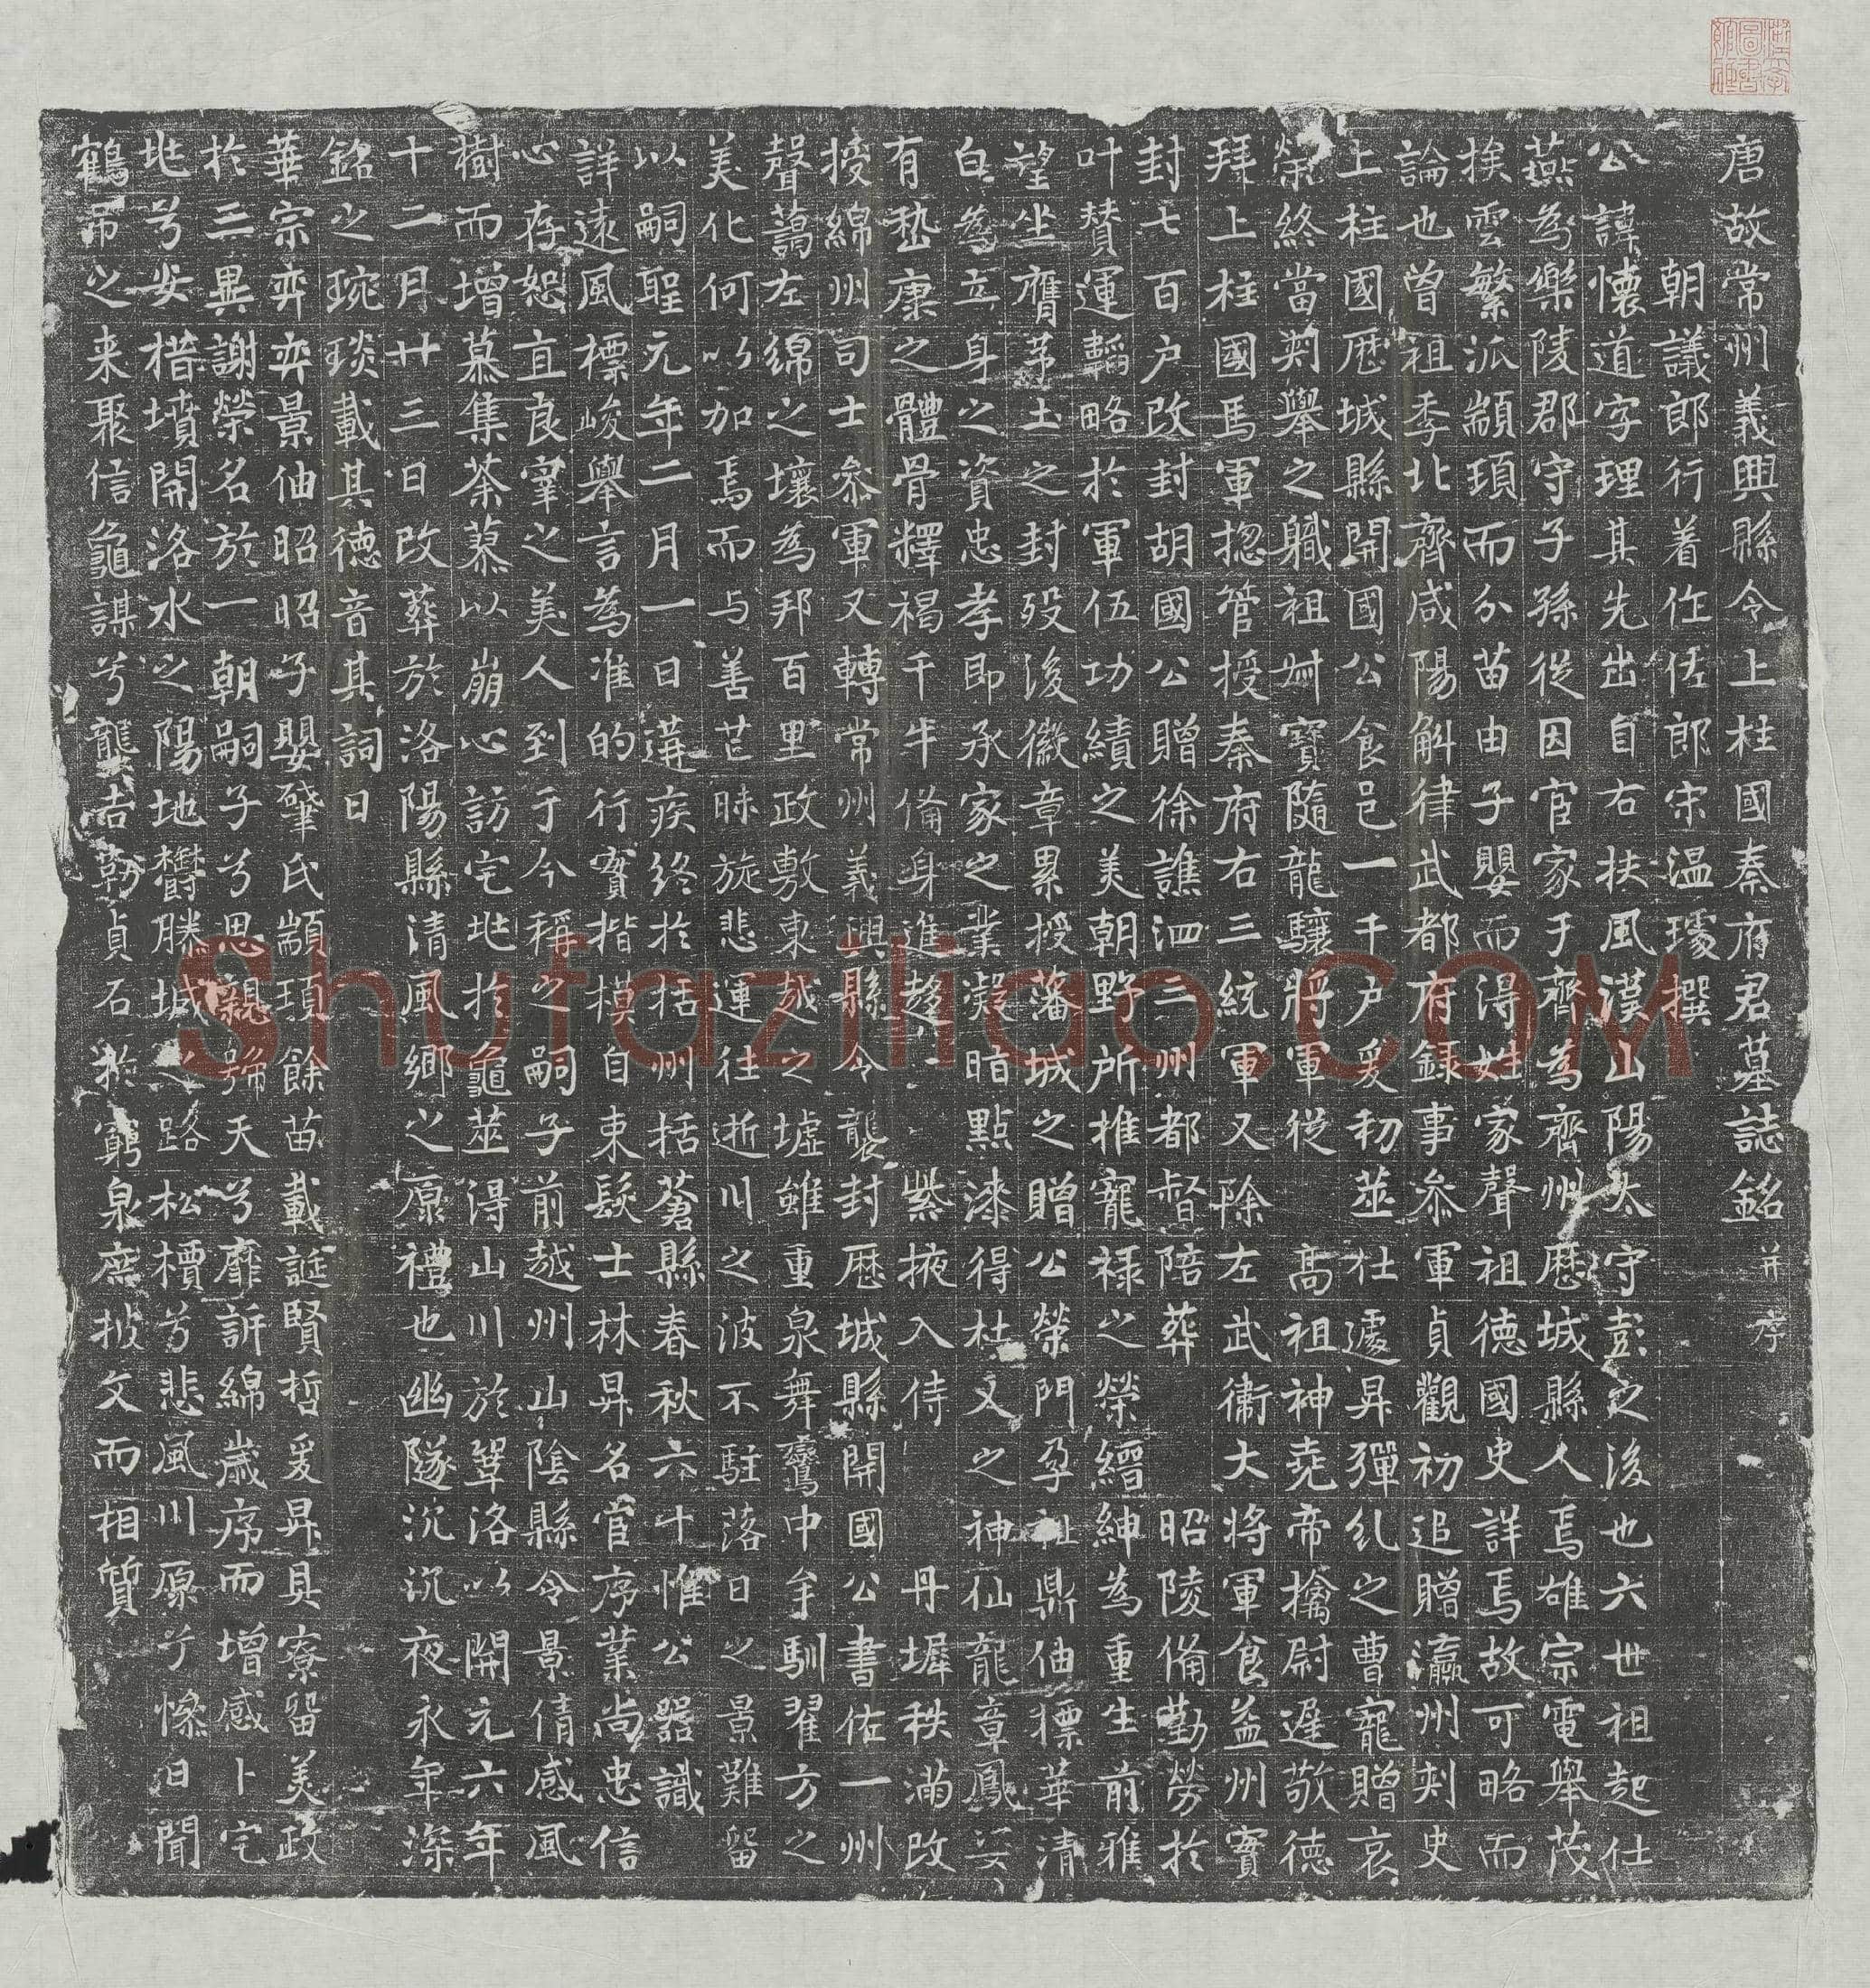 唐故常州義興縣令上柱國秦府君墓誌銘 并序
朝議郎行著作佐郎宋温璩撰
公諱懷道字理其先出自右扶風漢山陽太守彭之後也六世祖起仕
燕為樂陵郡守子孫從因官家于齊為齊州歷城縣人焉雄宗電舉茂
族雲繁派顓頊而分苗由子嬰而得姓家聲祖德國史詳焉故可略而
論也曾祖季北齊咸陽斛律武都府錄事參軍貞觀初追贈瀛州刺史
上柱國歷城縣開國公食邑一千戶爰初莅仕遽昇彈糺之曹寵贈哀
榮終當刺舉之職祖叔寶隨龍驤將軍從 高祖神堯帝擒尉遲敬德
拜上柱國馬軍揔管授秦府右三統軍又除左武衛大將軍食益州實
封七百戶改封胡國公贈徐譙泗三州都督陪葬 昭陵備勤勞於
叶贊運韜略於軍伍功績之美朝野所推寵祿之榮縉紳為重生前雅
望坐膺茅土之封歿後徽章累授藩城之贈公榮門孕祉鼎伷摽華清
白為立身之資忠孝即承家之業凝暗點漆得杜乂之神仙龍章鳳姿
有嵇康之體骨釋褐千牛備身進趍 紫掖入侍 丹墀秩滿改
授綿州司士叅軍又轉常州義興縣令襲封歷城縣開國公書佐一州
聲藹左綿之壤為邦百里政敷東越之墟雖重泉舞鸞中牟馴翟方之
美化何以加焉而与善芒昧旋悲運往逝川之波不駐落日之景難留
以嗣聖元年二月一日遘疾終於括州括蒼縣春秋六十惟公器識
詳遠風標峻舉言為准的行實楷模自束髮士林昇名官序業尚忠信
心存恕直良宰之美人到于今稱之嗣子前越州山陰縣令景倩感風
樹而增慕集荼蓼以崩心訪宅地於龜莁得山川於鞏洛以開元六年
十二月廿三日改葬於洛陽縣清風鄉之原禮也幽隧沉沉夜永年深
銘之琬琰載其德音其詞曰
華宗弈弈景伷昭昭子嬰肇氏顓頊餘苗載誕賢哲爰昇具寮留美政
於三異謝榮名於一朝嗣子兮思親號天兮靡訴綿歲序而增感卜宅
地兮安措墳開洛水之陽地欝滕城之路松檟兮悲風川原兮慘日聞
鶴弔之来聚信龜謀兮龍吉勒貞石於窮泉庶披文而相質